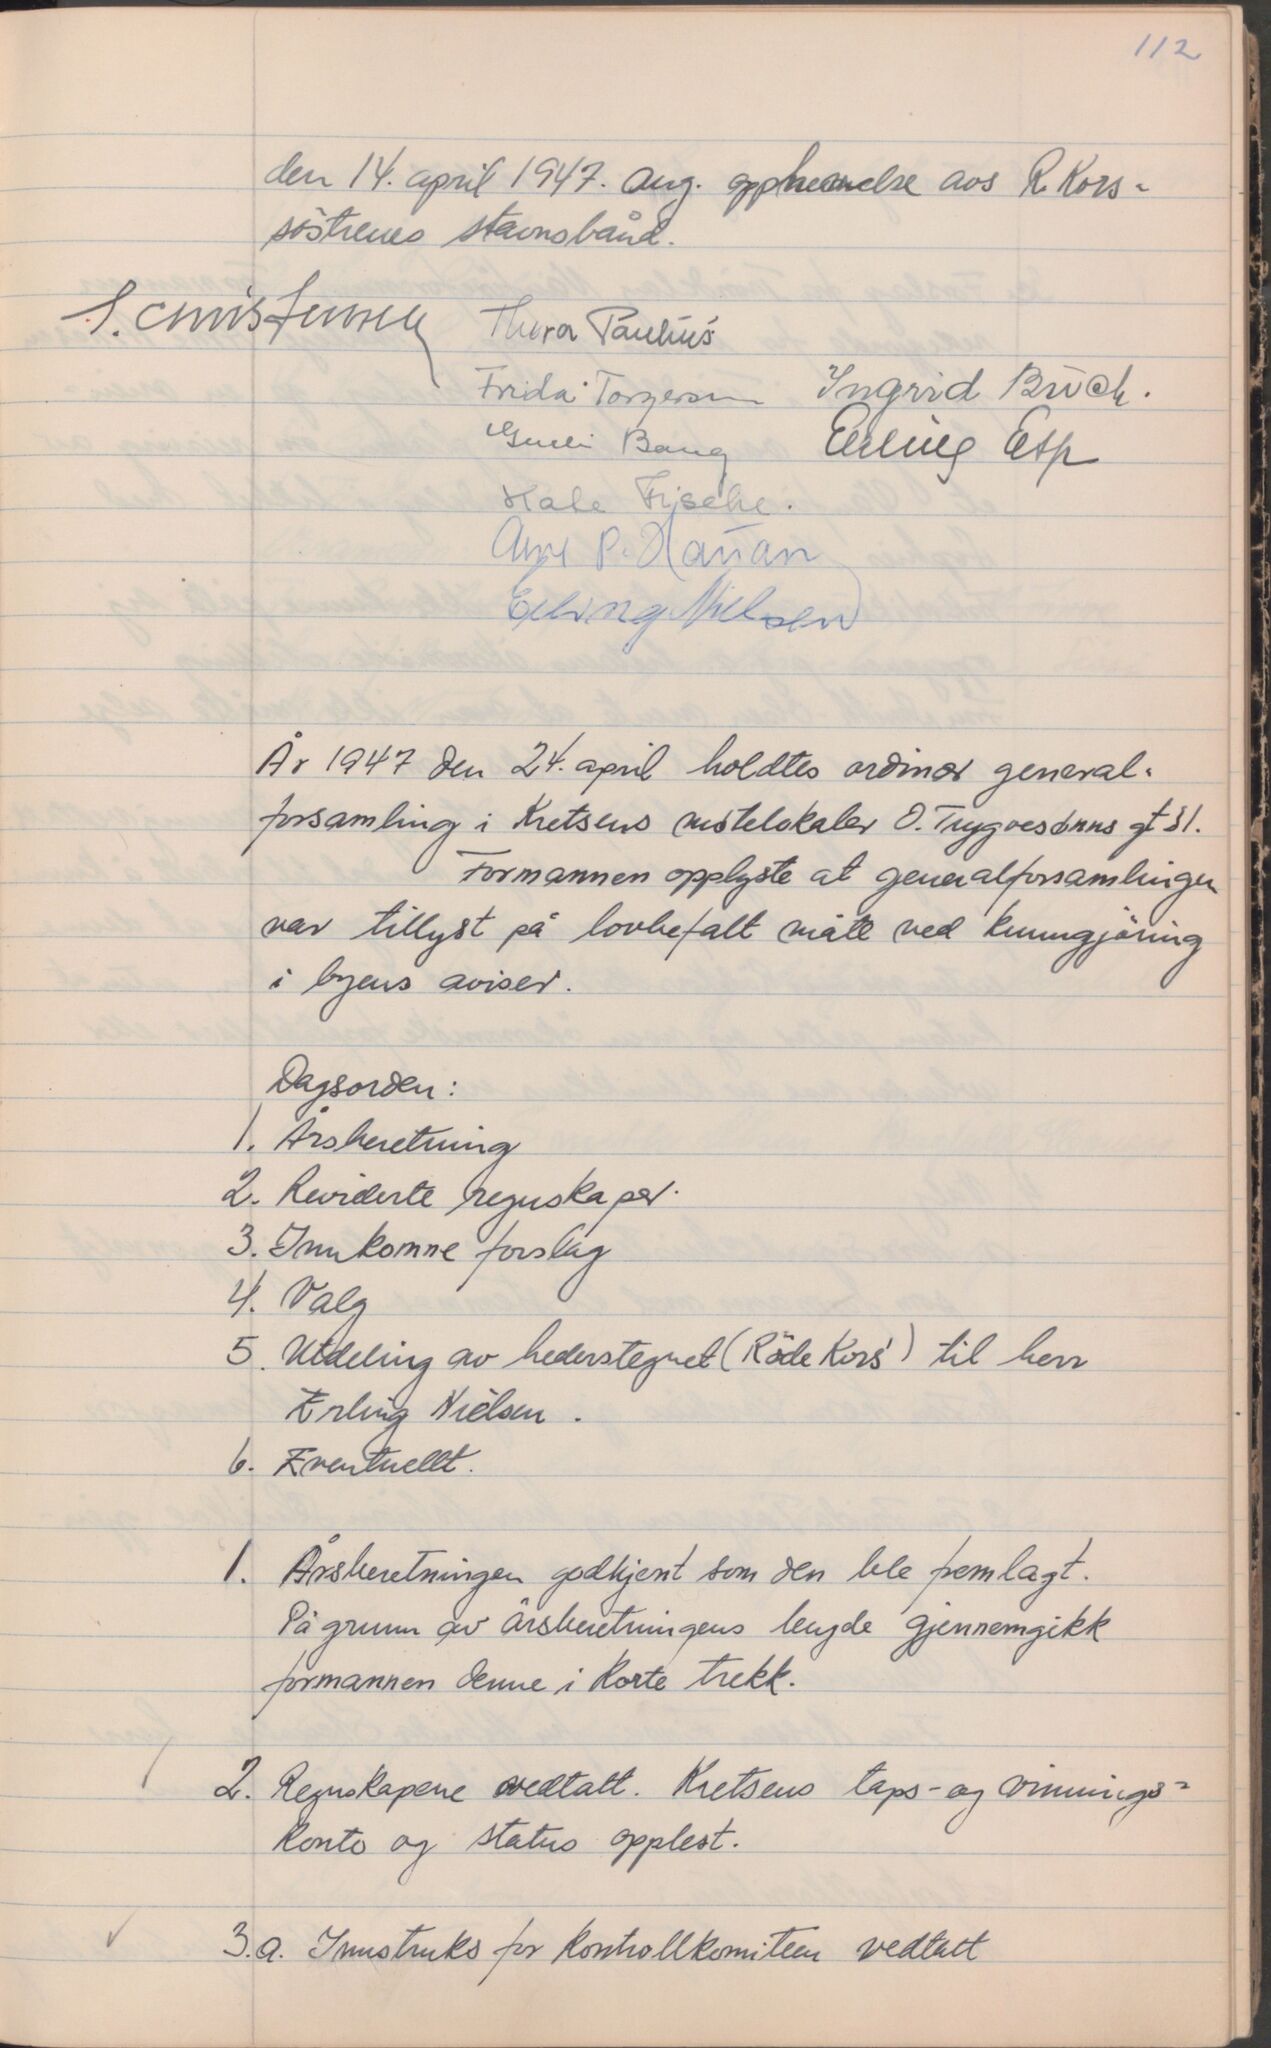 112
den 14. april 1947. ang. opphevelse av R. Kors-
söstrenes stavnsbånd.
S. Christensen
Thora Paulus
Frida Torgersen Ingrid Buch.
Gulli Bang Erling Esp
Kate Fische.
P.
Erling Nielsen
År 1947 den 24. april holdtes ordinær general-
forsamling i Kretsens møtelokaler O. Trygvesönns gt 31.
Formannen opplyste at generalforsamlingen
var tillyst på lovbefalt måte ved kunngjöring
i byens aviser.
Dagsorden:
1. Årsberetning
2. Reviderte regnskaper.
3. Innkomne forslag
4. Valg
5. Utdeling av hederstegnet (Röde Kors') til herr
Erling Nielsen.
6. Eventuellt.
1. Årsberetningen godkjent som den ble fremlagt.
På grunn av årsberetningens lengde gjennemgikk
formannen denne i korte trekk.
2. Regnskapene vedtatt. Kretsens taps- og vinnings-
konto og status opplest.
3.a. Innstruks for kontrollkomiteen vedtatt